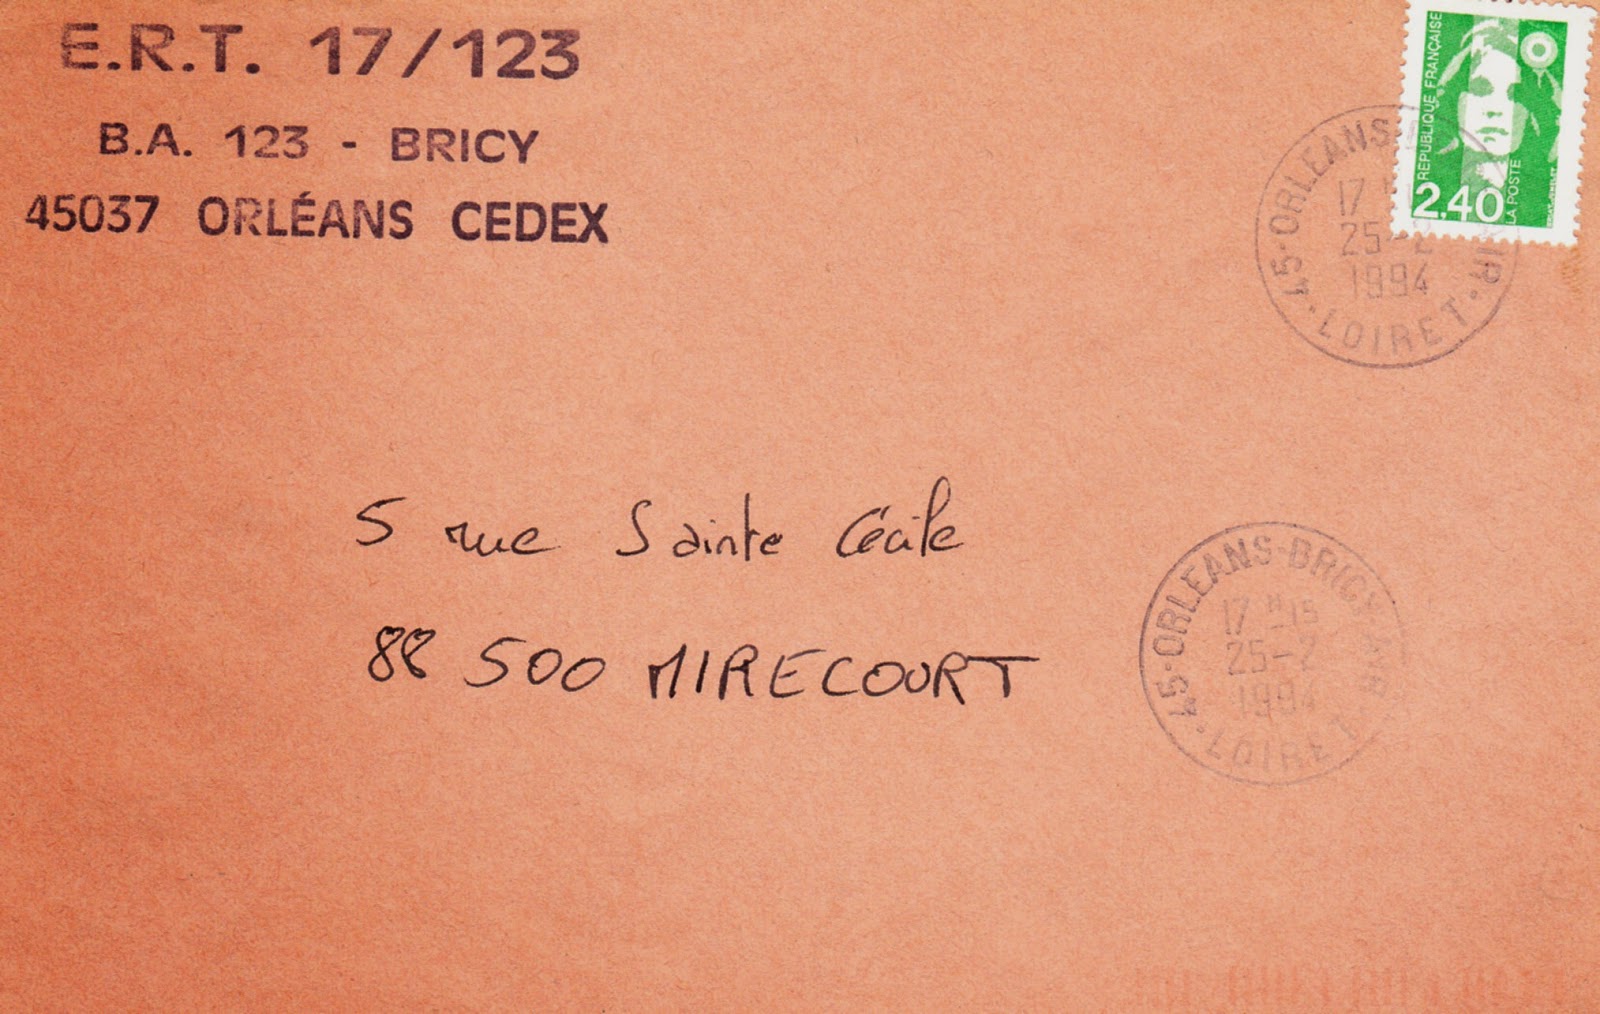 E.R.T. 17/123
B.A. 123 - BRICY
45037 ORLÉANS CEDEX
RÉPUBLIQUE FRANÇAISE
2,40
LA POSTE
45-ORLEANS-
AIR
17 H
25-2
1994
LOIRET
5 rue Sainte Cécile
88 500 MIRECOURT
45-ORLEANS-BRICY-AIR
17 H-15
25-2
1994
LOIRET